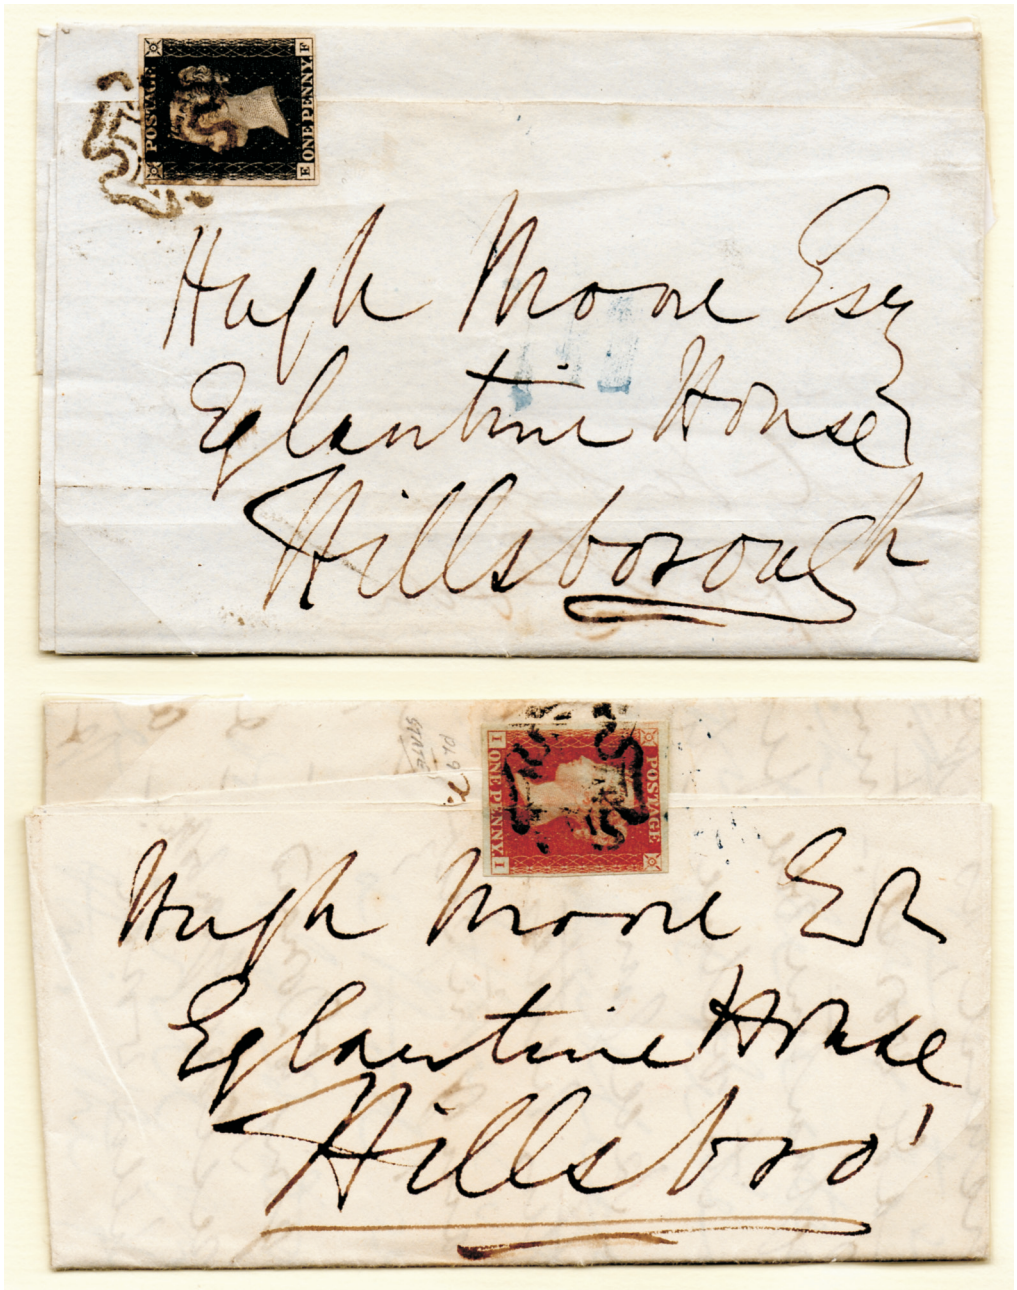 POSTAGE
E ONE PENNY F
Hugh Moore Esq
Eglantine House
Hillsborough
PL 9
STATE
POSTAGE
I ONE PENNY I
Hugh Moore Esq
Eglantine House
Hillsboro'